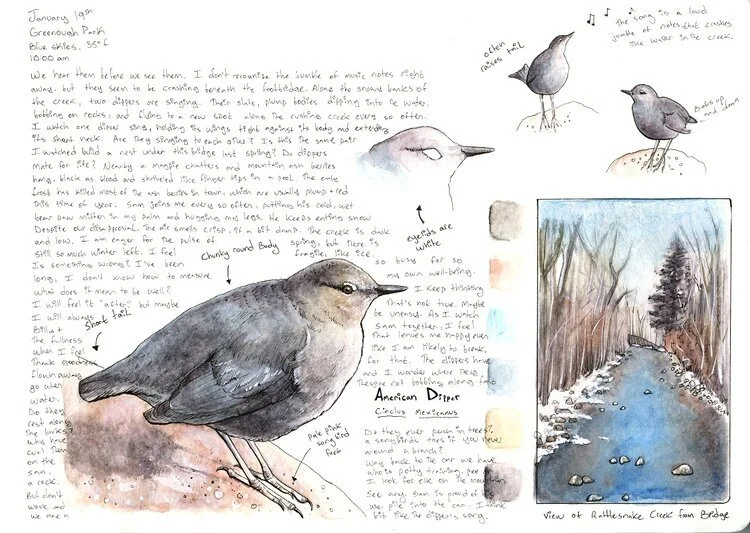 January 19th
Greenough Park
Blue skies, 35°f
10:00 am
We hear them before we see them. I don't recognize the jumble of music notes right
away, but they seem to be crashing beneath the footbridge. Along the snowy banks of
the creek, two dippers are singing. Their slate, plump bodies dipping into the water,
bobbing on rocks, and flying to a new spot along the rushing creek every so often.
I watch one dipper sing, holding its wings tight against its body and extending
its short neck. Are they singing to each other? Is this the same pair
I watched build a nest under this bridge last spring? Do dippers
mate for life? Nearby a magpie chatters and mountain ash berries
hang, black as blood and shriveled like finger tips in a pool. The early
frost has killed most of the ash berries in town, which are usually plump + red
this time of year. Sam joins me every so often, putting his cold, wet
bear paw mitten in my palm and hugging my legs. He keeps eating snow
Despite our disapproval. The air smells crisp, if a bit damp. The creek is dark
and low. I am eager for the pulse of spring, but there is
still so much winter left. I feel fragile, like ice.
Is something wrong? I've been so busy for so
long, I don't know how to measure my own well-being.
what does it mean to be well? I keep thinking
I will feel it "after," but maybe That's not true. Maybe
I will always be uneasy. As I watch
Billy + Sam together, I feel
The fullness That leaves me happy even
when I feel like I am likely to break.
Thank goodness for that. The dippers have
flown away and I wonder where they
go when They're not bobbing along fast
water.
Do they ever perch in trees?
rest along a songbirds toes if you never
the banks? around a branch?
why have Way back to the car we have
curl them who is potty training, pee
on the I look for elk on the mountain.
Sam,
a rock. See any. Sam is proud of
But don't we pile into the car. I think
work and bit like the dipper's song.
we
often
raises tail
The song is a loud
jumble of notes that crashes
like water in the creek.
Bobs up
and down.
eyelids are
white
Chunky round Body
Short tail
American Dipper
Cinclus Mexicanus
pale pink
songbird
feet
View of Rattlesnake Creek from Bridge